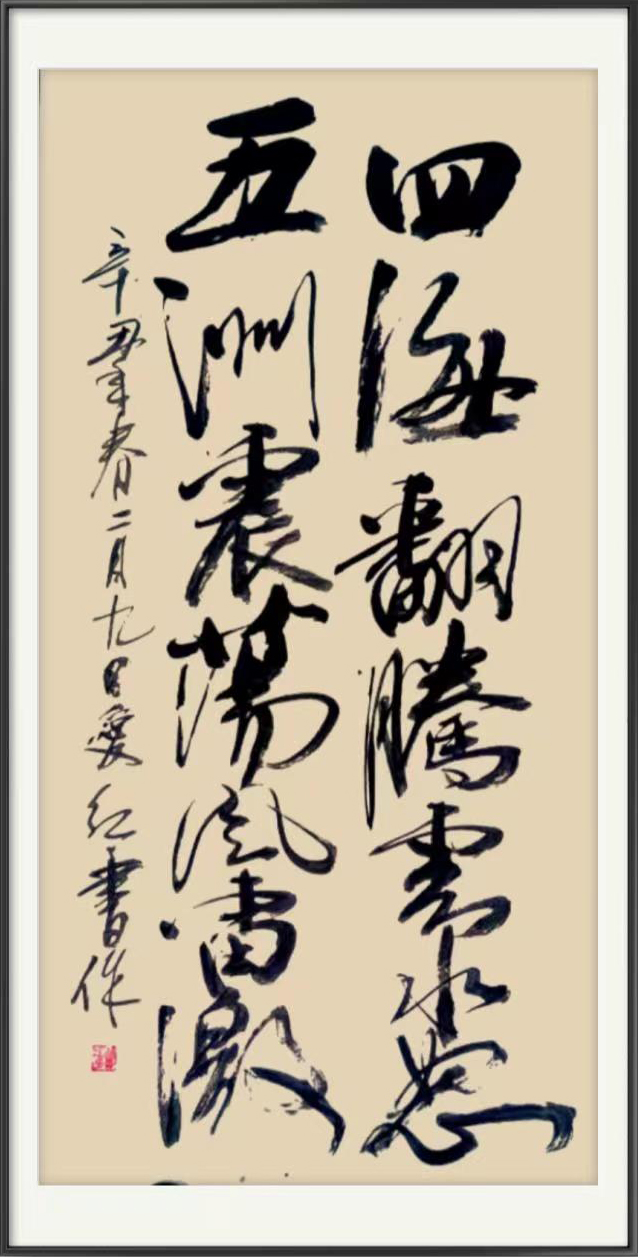 四海翻騰雲水怒
五洲震荡風雷激
辛丑年春二月九日愛红書作